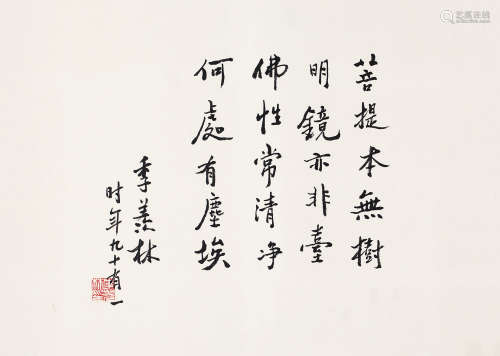 菩提本無樹
明鏡亦非臺
佛性常清净
何處有塵埃
季羨林
时年九十有一